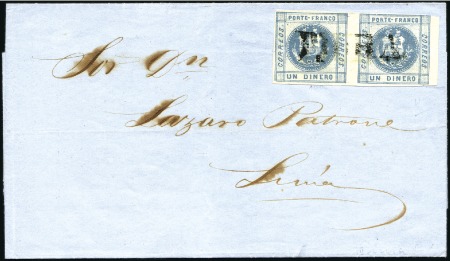 PORTE-FRANCO PORTE-FRANCO
CORREOS CORREOS CORREOS CORREOS
UN DINERO UN DINERO
Sor Dn
Lazaro Patrone
Lima